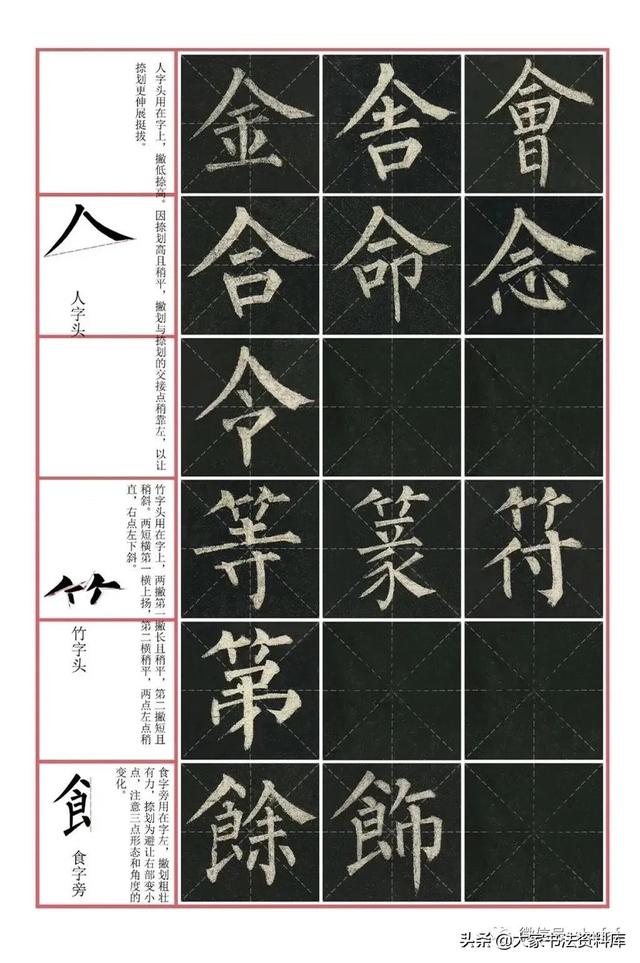 人字头用在字上，撇低捺高。因捺划高且稍平，撇划与捺划的交接点稍靠左，以让
捺划更伸展挺拔。
人
人字头
金 舍 會
合 命 念
令
竹字头用在字上，两撇第一撇长且稍平，第二撇短且
稍斜。两短横第一横上扬，第二横稍平，两点左点稍
直，右点左下斜。
竹字头
等 篆 符
第
食字旁用在字左，撇划粗壮
有力，捺划为避让右部变小
点，注意三点形态和角度的
变化。
飠
食字旁
餘 飾
头条@大家书法资料库